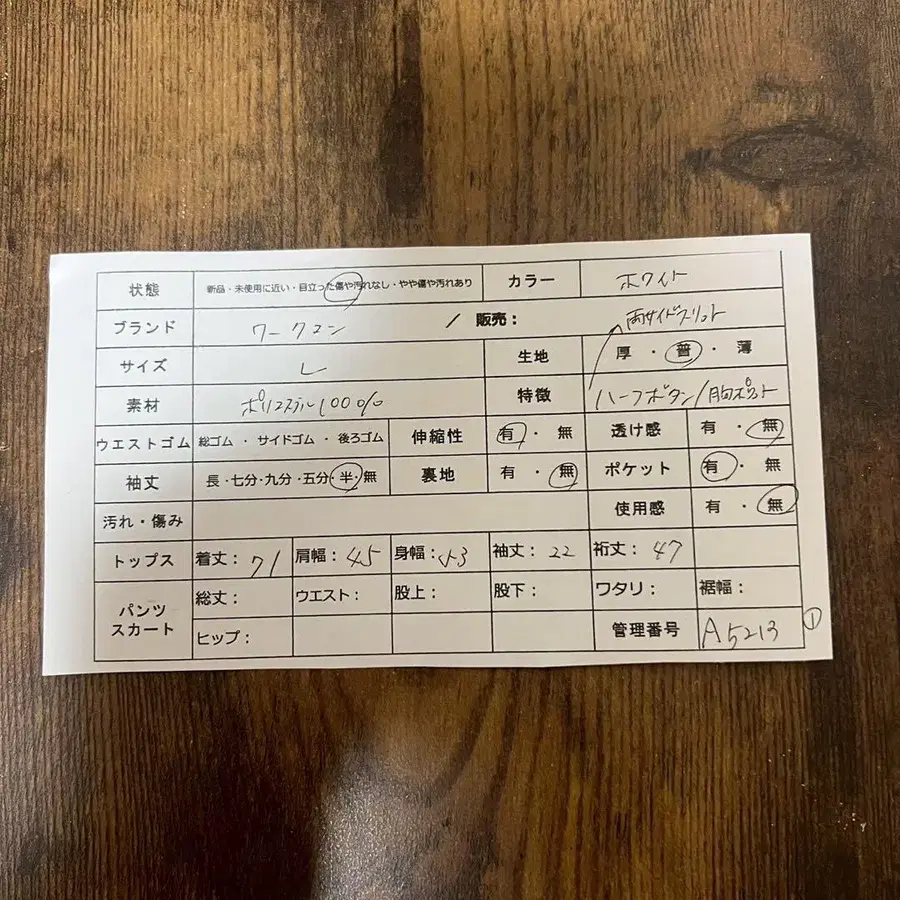 状態 新品・未使用に近い・目立った傷や汚れなし・やや傷や汚れあり カラー ホワイト
ブランド ワークマン / 販売： 両サイドスリット
サイズ L 生地 厚・普・薄
素材 ポリエステル100% 特徴 ハーフボタン/胸ポケット
ウエストゴム 総ゴム・サイドゴム・後ろゴム 伸縮性 有・無 透け感 有・無
袖丈 長・七分・九分・五分・半・無 裏地 有・無 ポケット 有・無
汚れ・傷み 使用感 有・無
トップス 着丈：71 肩幅：45 身幅：53 袖丈：22 裄丈：47
パンツ スカート 総丈： ウエスト： 股上： 股下： ワタリ： 裾幅：
ヒップ： 管理番号 A5213 ①